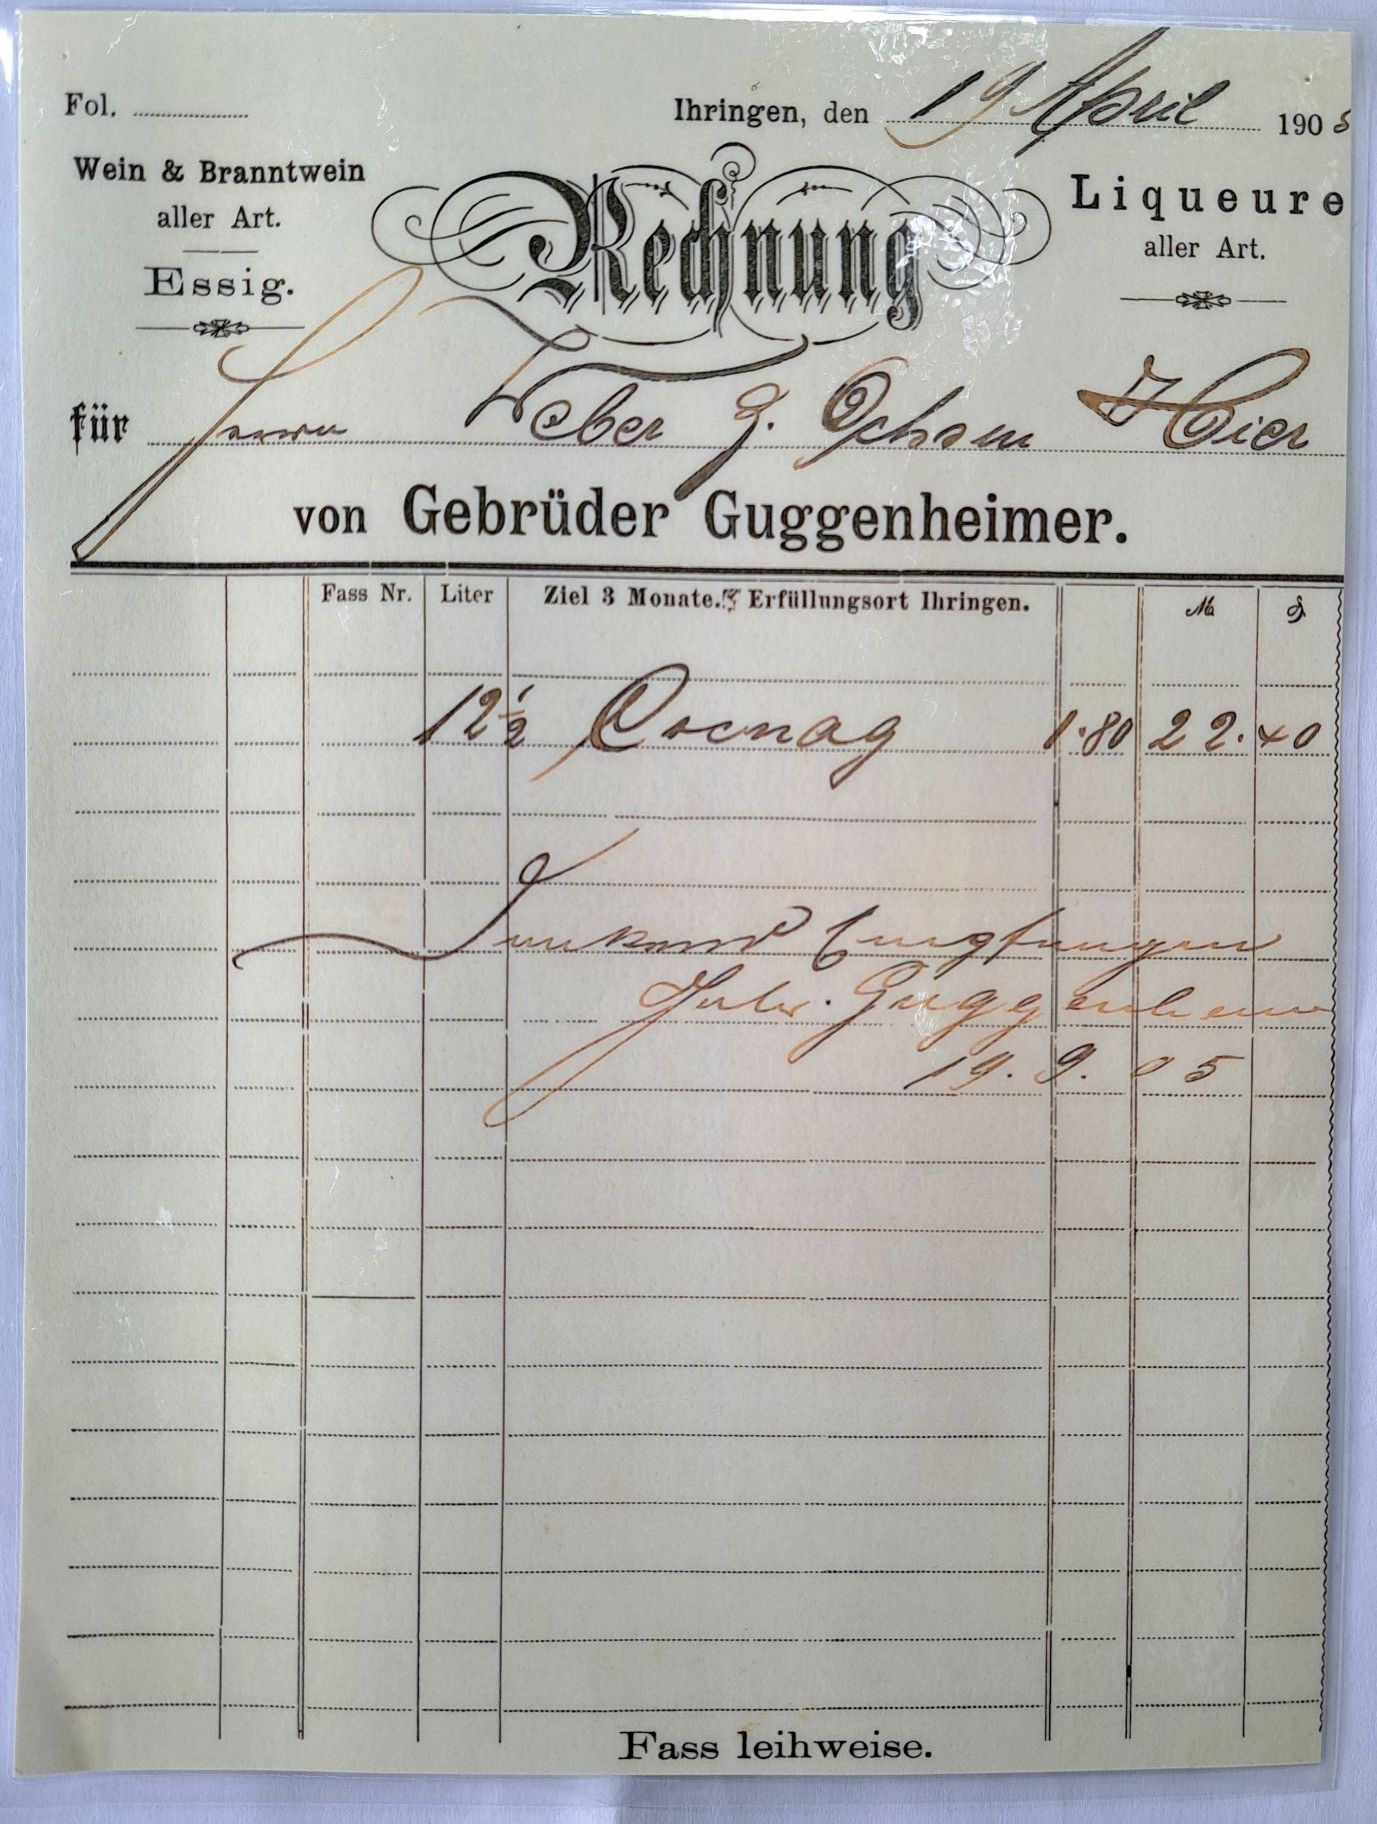 Fol.
Ihringen, den 19 April 1905
Wein & Branntwein
aller Art.
Essig.
Rechnung
Liqueure
aller Art.
für Herrn Weber z. Ochsen Hier
von Gebrüder Guggenheimer.
Fass Nr. Liter Ziel 3 Monate. Erfüllungsort Ihringen. M ₰
12½ Cocnag 1.80 22.40
Dankend Empfangen
Guggenheim
19. 9. 05
Fass leihweise.